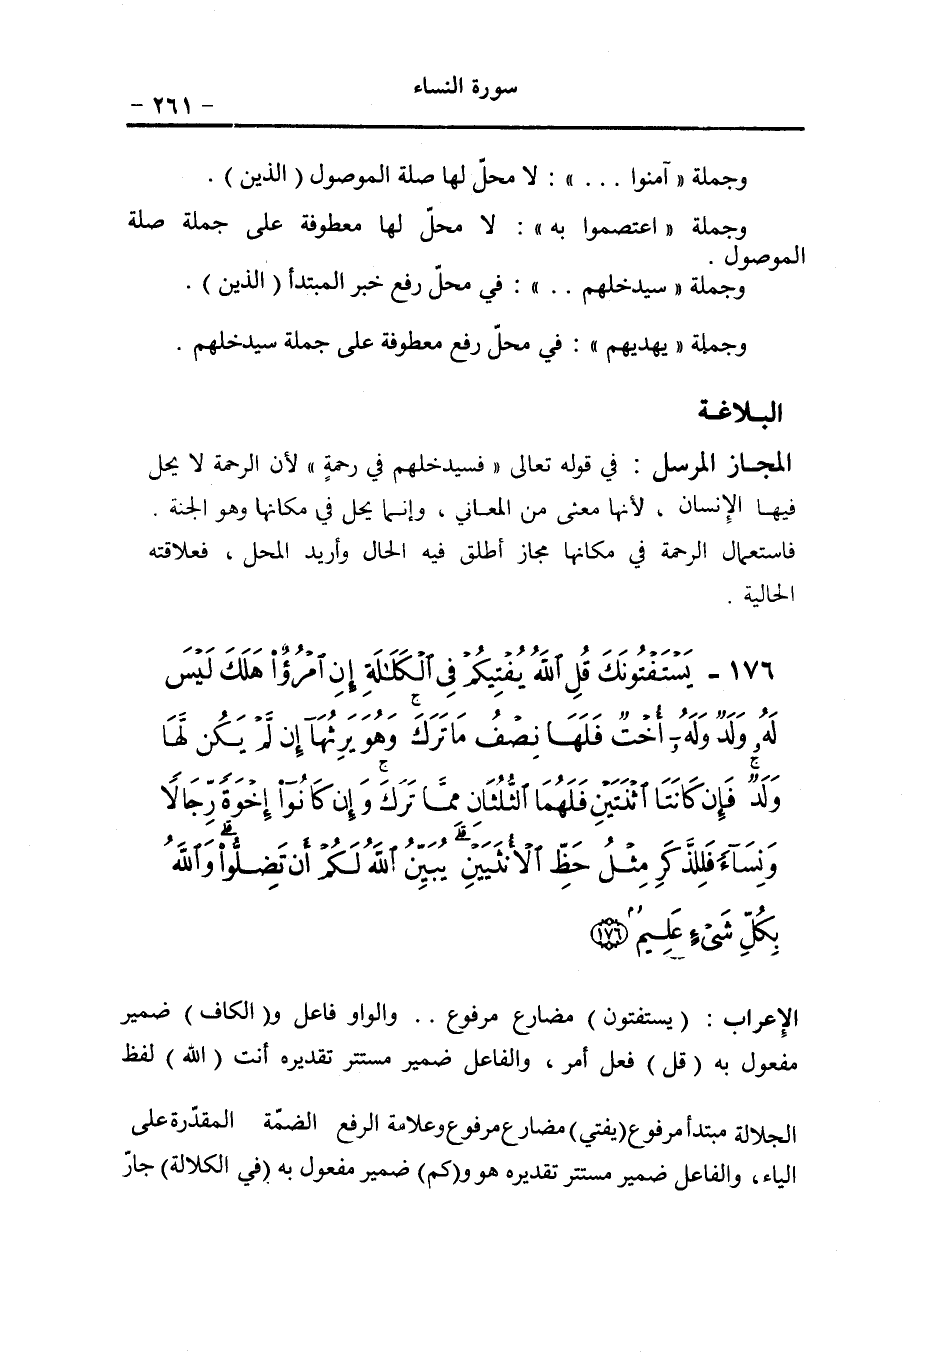 سورة النساء
- ٢٦١ -
وجملة « آمنوا . . . » : لا محلّ لها صلة الموصول ( الذين ) .
وجملة « اعتصموا به » : لا محلّ لها معطوفة على جملة صلة
الموصول .
وجملة « سيدخلهم . . » : في محلّ رفع خبر المبتدأ ( الذين ) .
وجملة « يهديهم » : في محلّ رفع معطوفة على جملة سيدخلهم .
البـلاغـة
المجـاز المرسل : في قوله تعالى « فسيدخلهم في رحمةٍ » لأن الرحمة لا يحل
فيهـا الإنسان ، لأنها معنى من المعـاني ، وإنـما يحل في مكانها وهو الجنة .
فاستعمال الرحمة في مكانها مجاز أطلق فيه الحال وأريد المحل ، فعلاقته
الحالية .
١٧٦ - يَسْتَفْتُونَكَ قُلِ ٱللَّهُ يُفْتِيكُمْ فِى ٱلْكَلَٰلَةِ إِنِ ٱمْرُؤٌاْ هَلَكَ لَيْسَ
لَهُۥ وَلَدٌ وَلَهُۥٓ أُخْتٌ فَلَهَا نِصْفُ مَا تَرَكَ ۚ وَهُوَ يَرِثُهَآ إِن لَّمْ يَكُن لَّهَا
وَلَدٌ ۚ فَإِن كَانَتَا ٱثْنَتَيْنِ فَلَهُمَا ٱلثُّلُثَانِ مِمَّا تَرَكَ ۚ وَإِن كَانُوٓاْ إِخْوَةً رِّجَالًا
وَنِسَآءً فَلِلذَّكَرِ مِثْلُ حَظِّ ٱلْأُنثَيَيْنِ ۗ يُبَيِّنُ ٱللَّهُ لَكُمْ أَن تَضِلُّواْ ۗ وَٱللَّهُ
بِكُلِّ شَىْءٍ عَلِيمٌۢ ﴿١٧٦﴾
الإعراب : ( يستفتون ) مضارع مرفوع . . والواو فاعل و( الكاف ) ضمير
مفعول به ( قل ) فعل أمر ، والفاعل ضمير مستتر تقديره أنت ( الله ) لفظ
الجلالة مبتدأ مرفوع (يفتي) مضارع مرفوع وعلامة الرفع الضمّة المقدّرة على
الياء ، والفاعل ضمير مستتر تقديره هو و(كم) ضمير مفعول به (في الكلالة) جارّ